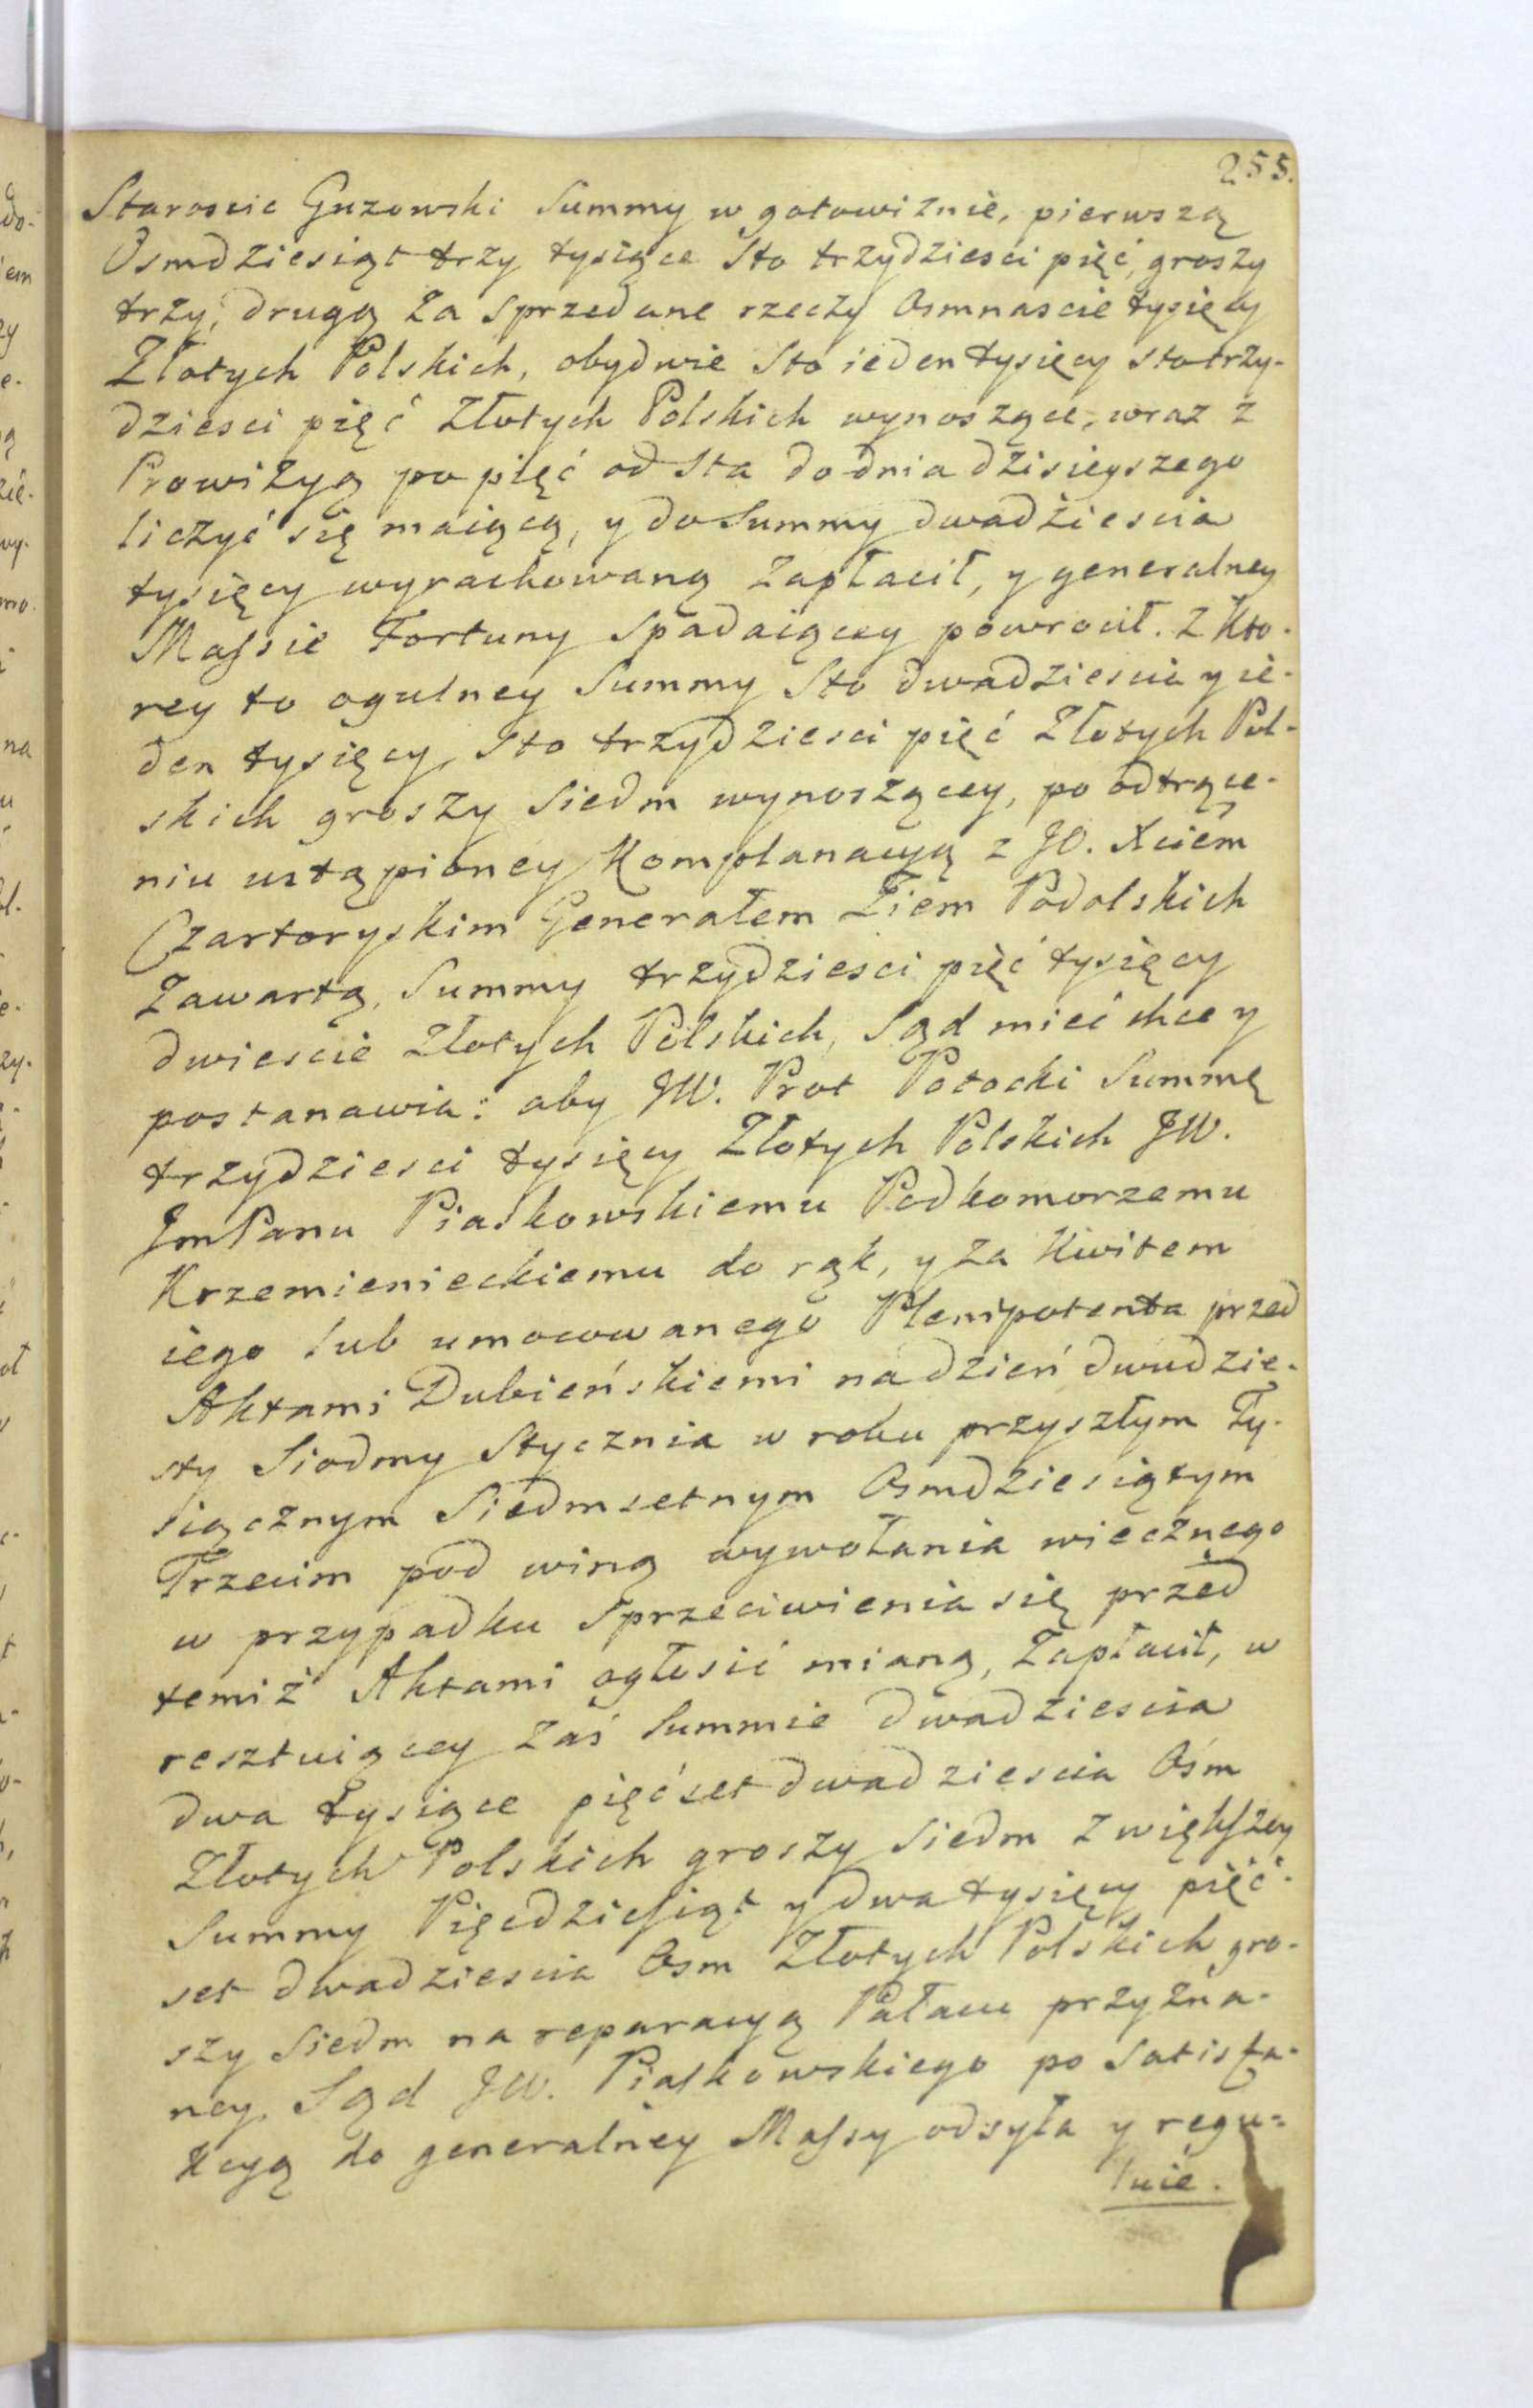 255.
Staroscic Guzowski Summy w gotowiznie, pierwszą
Osmdziesiąt trzy tysiące Sto trzydziesci pięć, groszy
trzy, drugą za sprzedane rzeczy Osmnascie tysięcy
Złotych Polskich, obydwie Sto ieden tysięcy sto trzy-
dziesci pięć Złotych Polskich wynoszące, wraz z
Prowizyą po pięć od Sta do dnia dzisieyszego
liczyć się maiącą, y do Summy dwadziescia
tysięcy wyrachowaną zapłacił, y generalney
Massie Fortuny spadaiącey powrocił. Z kto-
rey to ogulney Summy Sto dwadziescia y ie-
den tysięcy, Sto trzydziesci pięć Złotych Pol-
skich groszy Siedm wynoszącey, po odtrące-
niu ustąpioney Komplanacyą z JO. Xciem
Czartoryskim Generałem Ziem Podolskich
zawartą, Summy trzydziesci pięć tysięcy
dwiescie Złotych Polskich, Sąd mieć chce y
postanawia: aby JW. Prot Potocki Summę
trzydziesci tysięcy Złotych Polskich JW.
JmPanu Piaskowskiemu Podkomorzemu
Krzemienieckiemu do rąk, y za Kwitem
iego lub umocowanego Plenipotenta przed
Aktami Dubieńskiemi na dzień dwudzie-
sty Siodmy Stycznia w roku przyszłym Ty-
siącznym Siedmsetnym Osmdziesiątym
Trzecim pod winą wywołania wiecznego
w przypadku Sprzeciwienia się przed
temiż Aktami ogłosić mianą, Zapłacił, w
resztuiącey zaś Summie dwadziescia
dwa tysiące pięćset dwadziescia Ośm
Złotych Polskich groszy Siedm z większey
Summy Pięcdziesiąt y dwa tysięcy pięć-
set dwadziescia Osm Złotych Polskich gro-
szy Siedm na reparacyą Pałacu przyzna-
ney, Sąd JW. Piaskowskiego po satisfa-
kcyą do generalney Massy odsyła y regu-
luie.